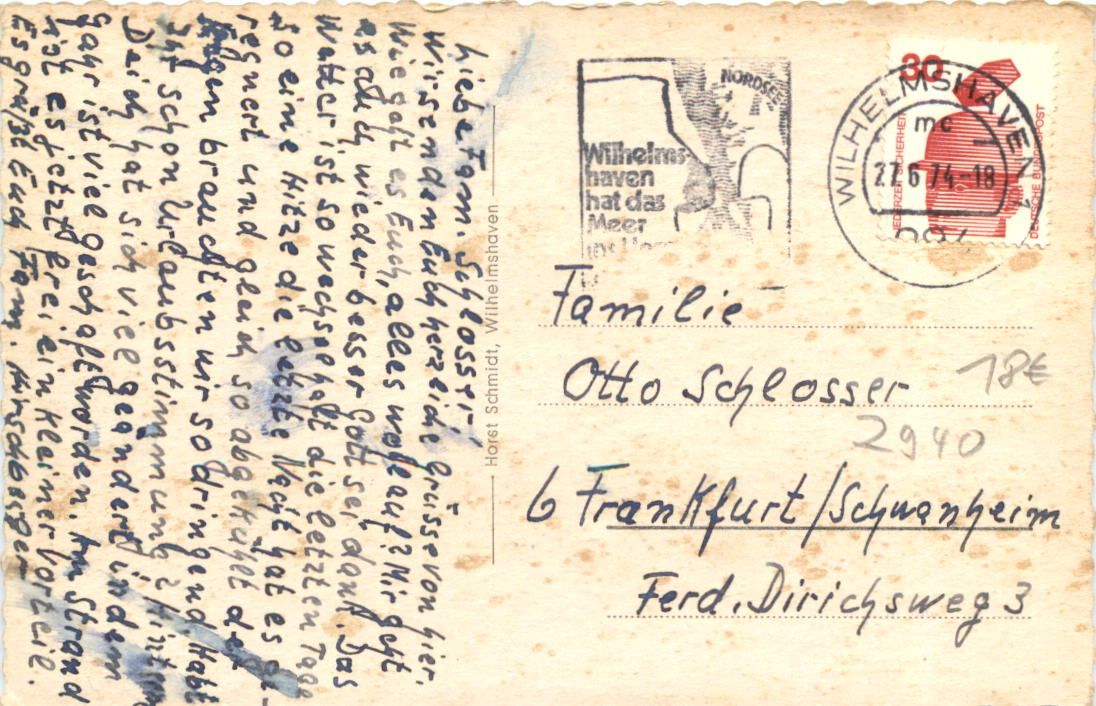 Liebe Fam. Schlosser!
Wir senden Euch herzliche Grüsse von hier.
Wie geht es Euch, alles wohlauf? Mir geht
es auch wieder besser Gott sei dank. Das
Wetter ist so wechselhaft die letzten Tage
so eine Hitze die letzte Nacht hat es ge-
regnet und gleich so abgekühlt der
Regen brauchten wir so dringend. Habt
Ihr schon Urlaubsstimmung? Hinterm
Deich hat sich viel geändert in dem
Jahr ist viel geschafft worden. Am Strand
ist es jetzt frei ein kleiner Vorteil.
Es grüßt Euch Fam. Hirschberger
Horst Schmidt, Wilhelmshaven
NORDSEE
Wilhelms-
haven
hat das
Meer
30
WILHELMSHAVEN 1
mc
27.6.74-18
JEDERZEIT SICHERHEIT
DEUTSCHE BUNDESPOST
Familie
Otto Schlosser
18€
2940
6 Frankfurt/Schwanheim
Ferd. Dirichsweg 3